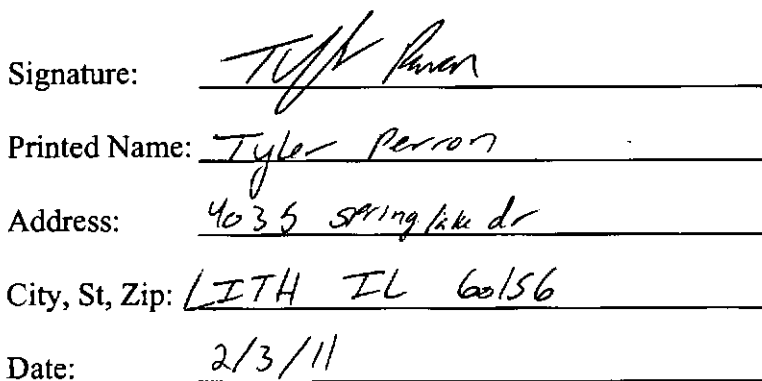 Signature: Tyler Perron
Printed Name: Tyler Perron
Address: 4035 spring lake dr
City, St, Zip: LITH IL 60156
Date: 2/3/11